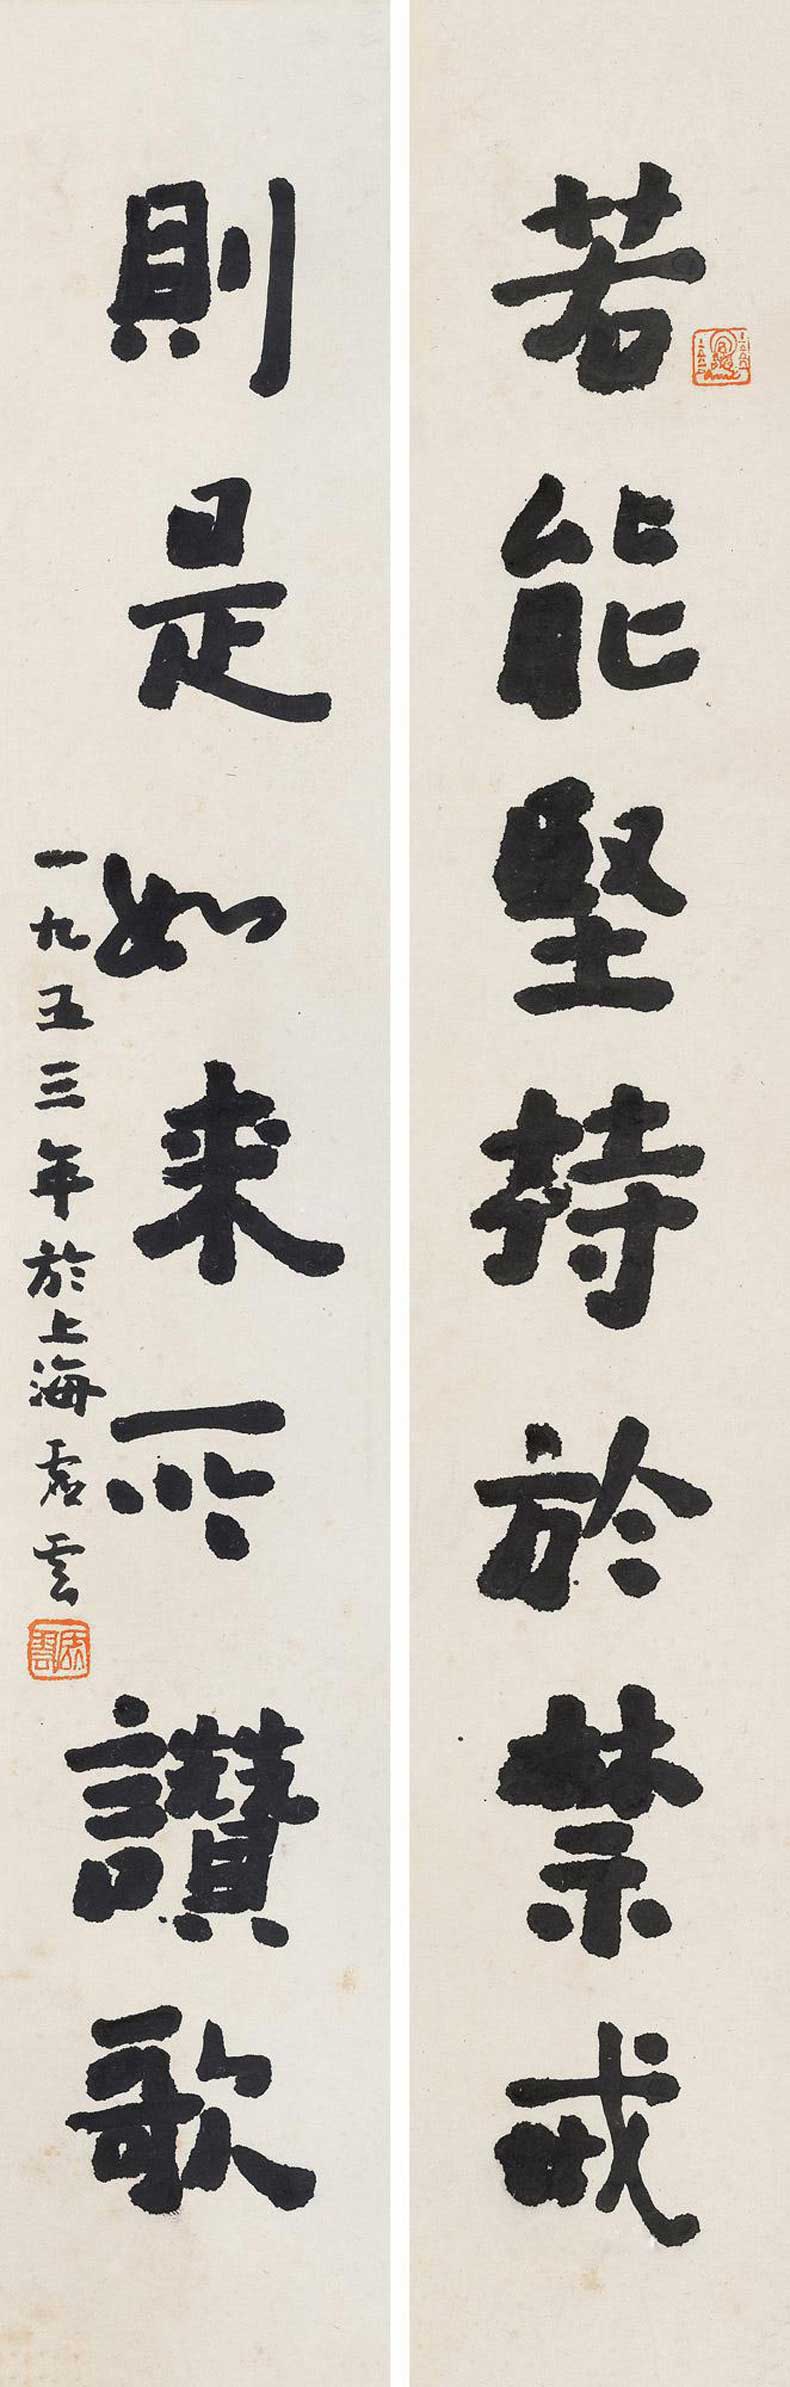 若能堅持於禁戒
則是如來所讚歌
一九五三年於上海虛雲